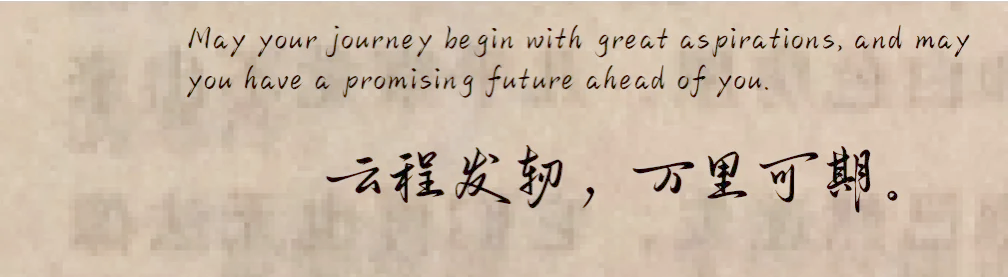 May your journey begin with great aspirations, and may
you have a promising future ahead of you.
云程发轫，万里可期。